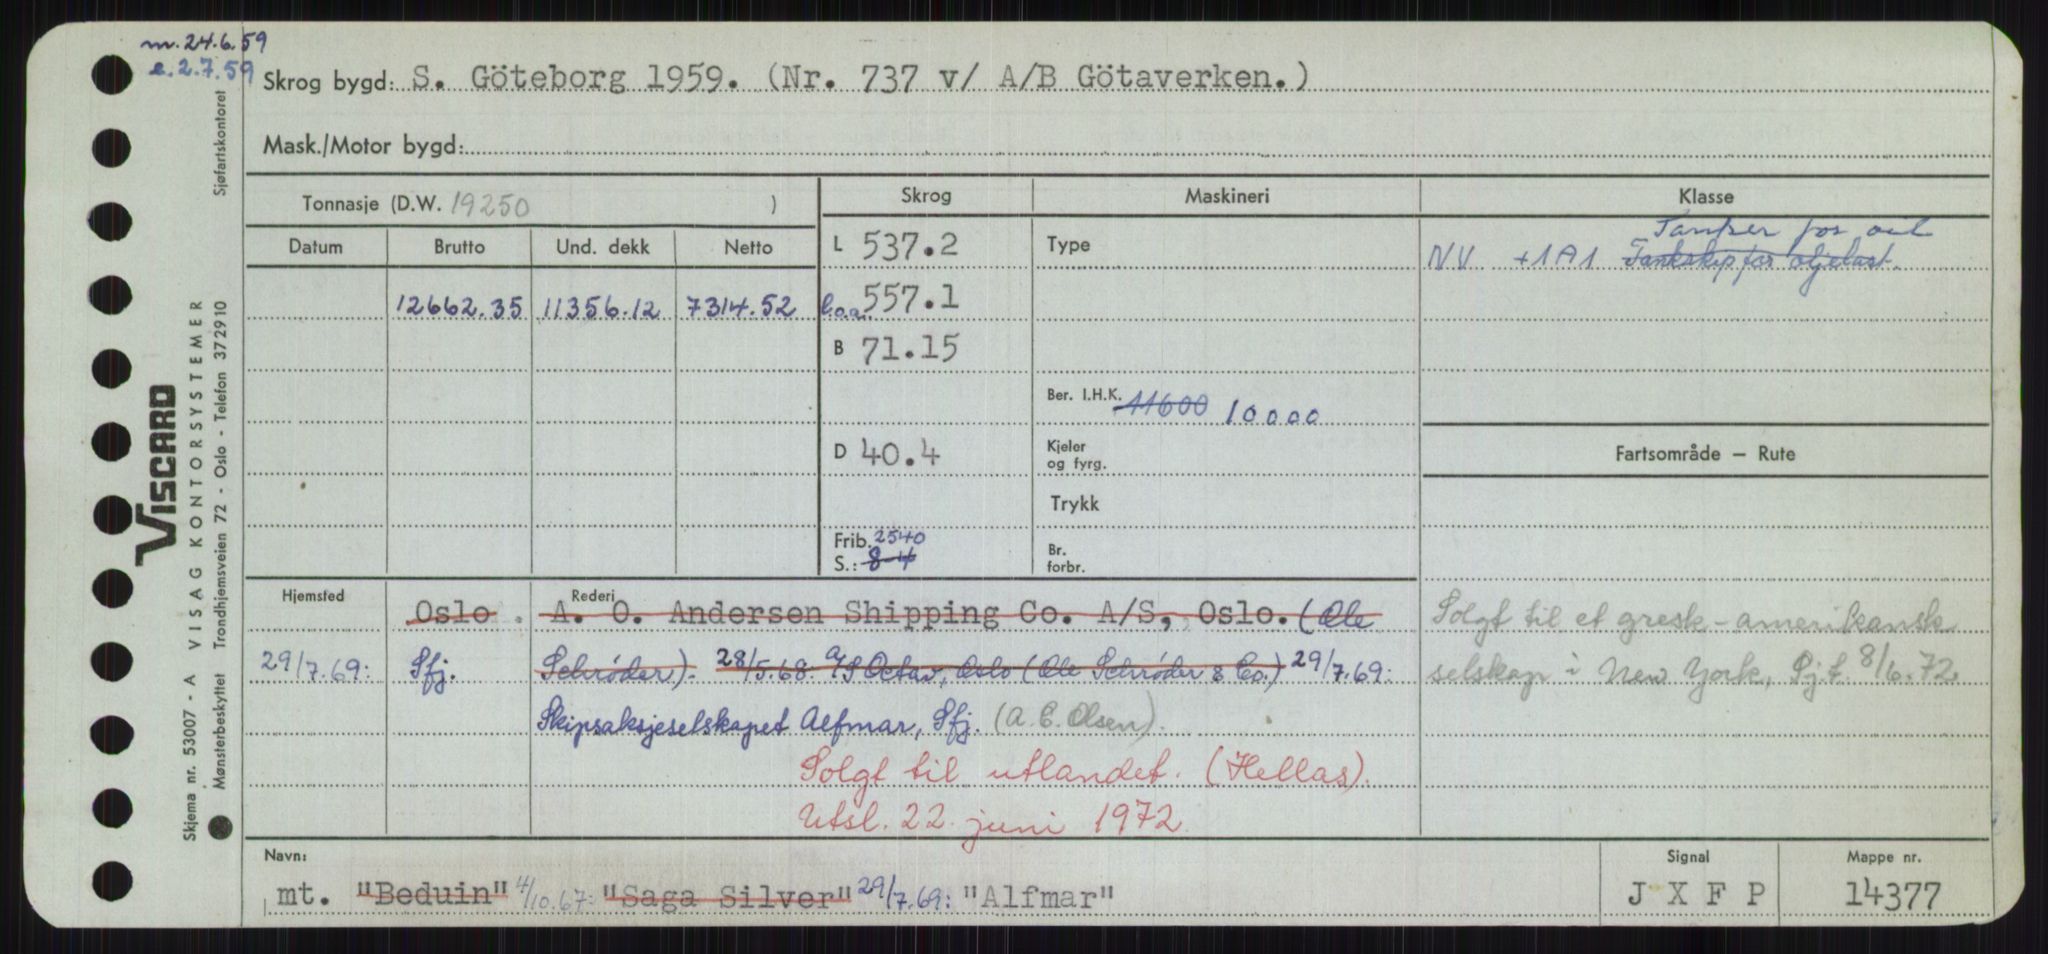 m. 24.6.59
e. 2.7.59
Skrog bygd: S. Göteborg 1959. (Nr. 737 v/ A/B Götaverken.)
Mask./Motor bygd:
Tonnasje (D.W. 19250 )
Skrog Maskineri Klasse
Datum Brutto Und. dekk Netto
L 537.2 Type
Tanker for oil
NV +1A1 Tankskip for oljelast.
12662.35 11356.12 7314.52 l.o.a. 557.1
B 71.15
Ber. I.H.K. 11600 10000
D 40.4 Kjeler
og fyrg.
Fartsområde – Rute
Trykk
Frib. 2540 Br.
S.: 8-4 forbr.
Hjemsted Rederi
Oslo. A. O. Andersen Shipping Co. A/S, Oslo. (Ole
29/7.69: Sfj. Schrøder). 28/5.68 A/S Octav, Oslo (Ole Schrøder & Co.) 29/7.69:
Skipsaksjeselskapet Alfmar, Sfj. (A. C. Olsen).
Solgt til utlandet. (Hellas).
Utsl. 22. juni 1972.
Solgt til et gresk-amerikansk
selskap i New York, Sj.t. 8/6.72
Navn:
mt. "Beduin" 4/10.67: "Saga Silver" 29/7.69: "Alfmar"
Signal
J X F P
Mappe nr.
14377
VISCARD
Skjema nr. 53007 - A VISAG KONTORSYSTEMER
Mønsterbeskyttet Trondhjemsveien 72 - Oslo - Telefon 372910
Sjøfartskontoret